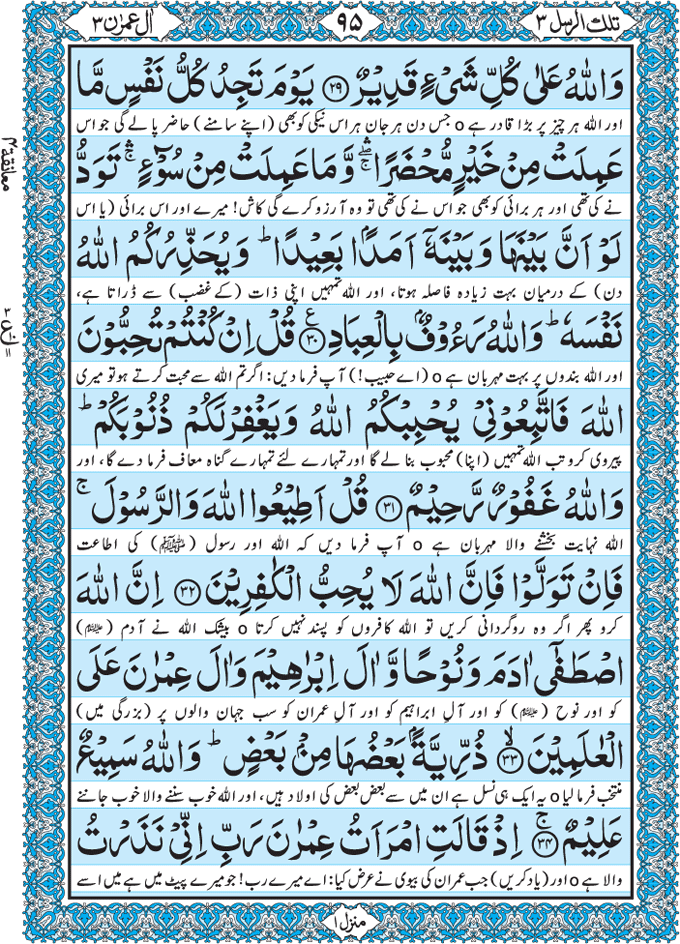 تلك الرسل ٣
٩٥
اٰل عمرٰن ٣
وَاللّٰهُ عَلٰى كُلِّ شَيْءٍ قَدِيْرٌ ﴿۲۹﴾ يَوْمَ تَجِدُ كُلُّ نَفْسٍ مَّا
اور اللہ ہر چیز پر بڑا قادر ہے o جس دن ہر جان ہر اس نیکی کو بھی (اپنے سامنے) حاضر پا لے گی جو اس
عَمِلَتْ مِنْ خَيْرٍ مُّحْضَرًا ۛۖۚ وَّمَا عَمِلَتْ مِنْ سُوْٓءٍ ۛۚ تَوَدُّ
نے کی تھی اور ہر برائی کو بھی جو اس نے کی تھی تو وہ آرزو کرے گی کاش! میرے اور اس برائی (یا اس
لَوْ اَنَّ بَيْنَهَا وَبَيْنَهٗٓ اَمَدًاۢ بَعِيْدًا ؕ وَيُحَذِّرُكُمُ اللّٰهُ
دن) کے درمیان بہت زیادہ فاصلہ ہوتا، اور اللہ تمہیں اپنی ذات (کے غضب) سے ڈراتا ہے،
نَفْسَهٗ ؕ وَاللّٰهُ رَءُوْفٌۢ بِالْعِبَادِ ﴿۳۰﴾ ع قُلْ اِنْ كُنْتُمْ تُحِبُّوْنَ
اور اللہ بندوں پر بہت مہربان ہے o (اے حبیب!) آپ فرما دیں: اگر تم اللہ سے محبت کرتے ہو تو میری
اللّٰهَ فَاتَّبِعُوْنِيْ يُحْبِبْكُمُ اللّٰهُ وَيَغْفِرْ لَكُمْ ذُنُوْبَكُمْ ؕ
پیروی کرو تب اللہ تمہیں (اپنا) محبوب بنا لے گا اور تمہارے لئے تمہارے گناہ معاف فرما دے گا، اور
وَاللّٰهُ غَفُوْرٌ رَّحِيْمٌ ﴿۳۱﴾ قُلْ اَطِيْعُوا اللّٰهَ وَالرَّسُوْلَ ۚ
اللہ نہایت بخشنے والا مہربان ہے o آپ فرما دیں کہ اللہ اور رسول (ﷺ) کی اطاعت
فَاِنْ تَوَلَّوْا فَاِنَّ اللّٰهَ لَا يُحِبُّ الْكٰفِرِيْنَ ﴿۳۲﴾ اِنَّ اللّٰهَ
کرو پھر اگر وہ روگردانی کریں تو اللہ کافروں کو پسند نہیں کرتا o بیشک اللہ نے آدم (علیہ السلام)
اصْطَفٰٓى اٰدَمَ وَنُوْحًا وَّاٰلَ اِبْرٰهِيْمَ وَاٰلَ عِمْرٰنَ عَلَى
کو اور نوح (علیہ السلام) کو اور آلِ ابراہیم کو اور آلِ عمران کو سب جہان والوں پر (بزرگی میں)
الْعٰلَمِيْنَ ﴿۳۳﴾ۙ ذُرِّيَّةًۢ بَعْضُهَا مِنْۢ بَعْضٍ ؕ وَاللّٰهُ سَمِيْعٌ
منتخب فرما لیا o یہ ایک ہی نسل ہے ان میں سے بعض بعض کی اولاد ہیں، اور اللہ خوب سننے والا خوب جاننے
عَلِيْمٌ ﴿۳۴﴾ۚ اِذْ قَالَتِ امْرَاَتُ عِمْرٰنَ رَبِّ اِنِّيْ نَذَرْتُ
والا ہے o اور (یاد کریں) جب عمران کی بیوی نے عرض کیا: اے میرے رب! جو میرے پیٹ میں ہے میں اسے
منزل ۱